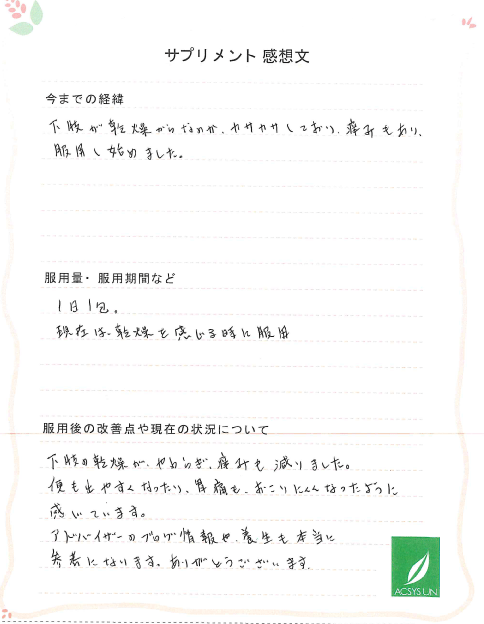 サプリメント 感想文
今までの経緯
下肢が乾燥からなのか、カサカサしており、痛みもあり、
服用し始めました。
服用量・服用期間など
1日1包。
現在は、乾燥を感じる時に服用
服用後の改善点や現在の状況について
下肢の乾燥が、やわらぎ、痛みも減りました。
便も出やすくなったり、胃痛も、おこりにくくなったように
感じています。
アドバイザーのブログ情報や、養生も本当に
参考になります。ありがとうございます。
ACSYS UN